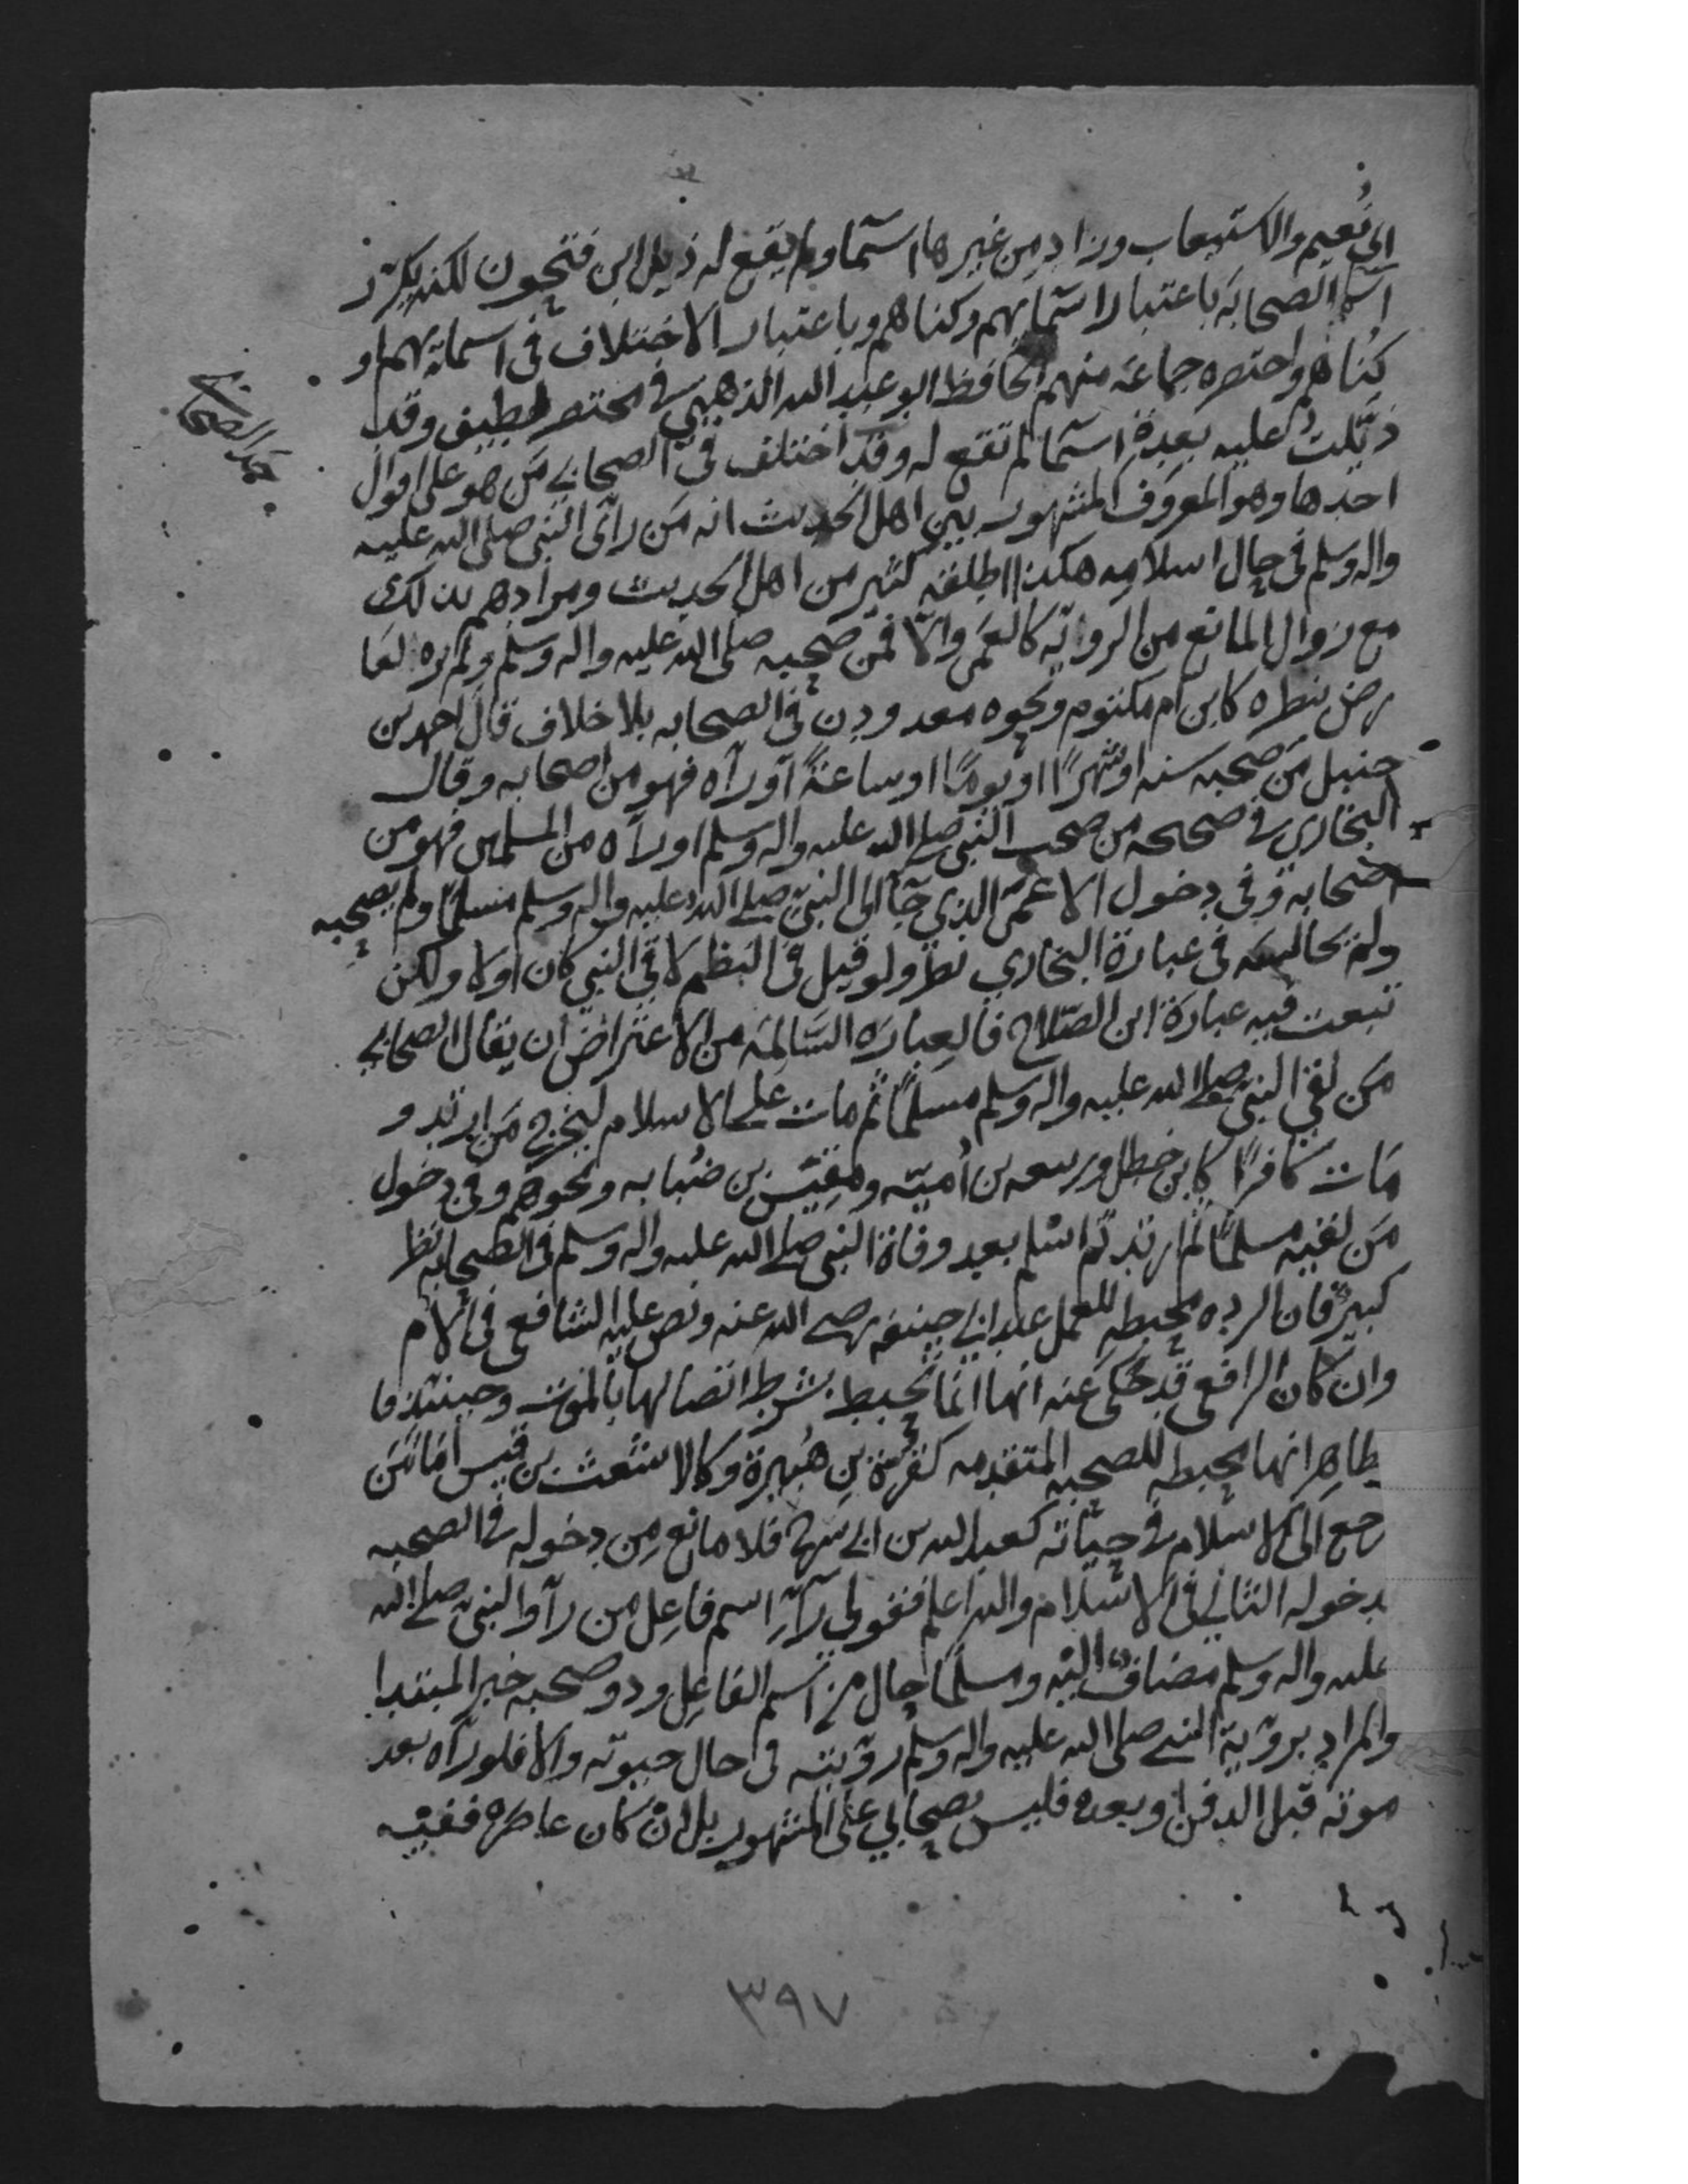 ابي نُعيم والاستيعاب وزاد من غيرها اسمآ ولم يقع له ذيل ابن فتحون لكنه يكرّر
اسمآ الصحابه باعتبار اسمآيهم وكناهم وباعتبار الاختلاف في اسمآئهم او
كُناهم واختصره جماعة منهم الحافظ ابو عبد الله الذهبي في مختصر لطيف وقد
ذيّلت عليه بعدة اسمآ لم تقع له وقد اختلف في الصحابي مَن هو على اقوال
احدها وهو المعروف المشهور بين اهل الحديث انه مَن رأى النبي صلى الله عليه
واله وسلم في حال اسلامه هكذا اطلقه كثير من اهل الحديث ومرادهم بذلك
مع زوال المانع من الرواية كالعمى والّا فمَن صحبه صلى الله عليه واله وسلم ولم يره لعا
رض بنظره كابن ام مكتوم ونحوه معدود في الصحابه بلا خلاف قال احمد بن
حنبل مَن صحبه سنه او شهرًا او يومًا او ساعةً او رآه فهو من اصحابه وقال
البخاري في صحيحه من صحب النبي صلى الله عليه واله وسلم او رآه من المسلمين فهو من
اصحابه وفي دخول الاعمى الذي جآ الى النبي صلى الله عليه واله وسلم مسلمًا ولم يصحبه
ولم يجالسه في عبارة البخاري نظر ولو قيل في النظم لاقي النبي كان اولا ولكن
تبعت فيه عبارة ابن الصّلاح فالعبارة السّالمة من الاعتراض ان يقال الصحابي
مَن لقي النبي صلى الله عليه واله وسلم مسلمًا ثم مات على الاسلام ليخرج مَن ارتد و
مَات كافرًا كابن خطل وربيعه بن اُميّه ومقيَس بن ضُبابه ونحوهم وفي دخول
مَن لقيه مسلمًا ثم ارتد ثم اسلم بعد وفاة النبي صلى الله عليه واله وسلم في الصحابه نظر
كبير فان الرده محبطه للعمل عند ابي حنيفه رضي الله عنه ونص عليه الشافعي في الام
وان كان الرافعي قد حكى عنه انها انما تحبط بشرط اتصالها بالموت وحينئذ فا
لظاهر انها محبطه للصحبه المتقدمه كقُرّة بن هُبيرة وكالاشعث بن قيس اما مَن
رجع الى الاسلام في حياته كعبد الله بن ابي سرح فلا مانع من دخوله في الصحبه
بدخوله الثاني في الاسلام والله اعلم فقولي رآءِ اسم فاعل من رآ والنبي صلى الله
عليه واله وسلم مضاف اليه ومسلمًا حال من اسم الفاعل وذو صحبه خبر المبتدا
والمراد برؤية النبي صلى الله عليه واله وسلم رؤيته في حال حيوته والا فلو رآه بعد
موته قبل الدفن او بعده فليس بصحابي على المشهور بل ان كان عاصره ففيه
حد الصحابي
٣٩٧